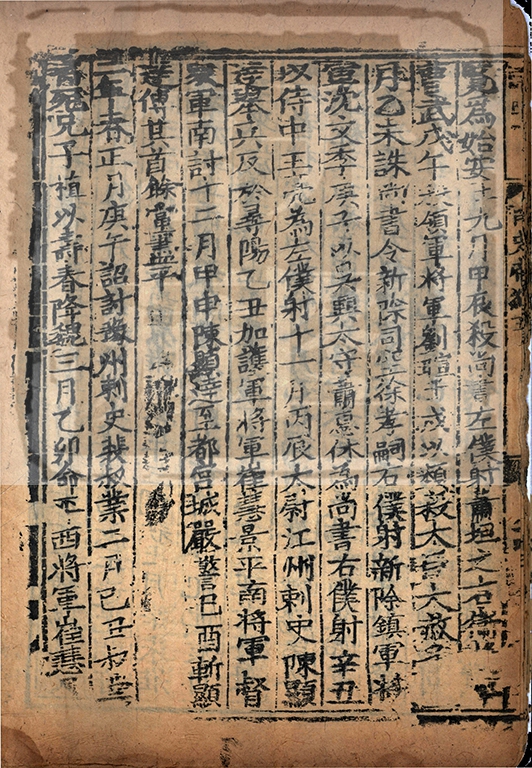 為始安王九月甲辰殺尚書左僕射蕭坦之右
曹武戊午殺領軍將軍劉暄壬戌以頻殺大臣大赦冬
月乙未誅尚書令新除司空徐孝嗣右僕射新除鎮軍將
軍沈文季庚子以吳興太守蕭惠休為尚書右僕射辛丑
以侍中王亮為左僕射十一月丙辰太尉江州刺史陳顯
達舉兵反於尋陽乙丑加護軍將軍崔慧景平南將軍督
衆軍南討十二月甲申陳顯達至都宮城嚴警己酉斬顯
達傳其首餘黨盡平
二年春正月庚午詔討豫州刺史裴叔業二月己丑叔業
病死兄子植以壽春降魏三月乙卯命平西將軍崔慧